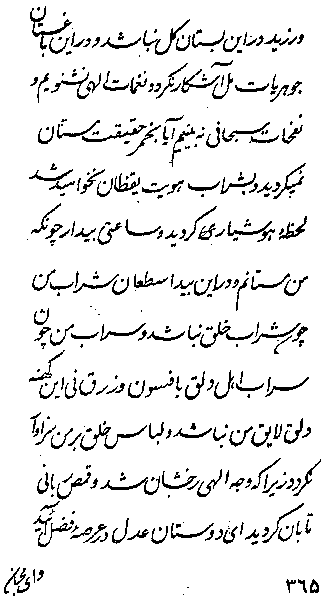 ورزید در این بستان گل نباشد و در این باغستان
جوهریات مل آشکار نگردد نغمات الهی نشنویم و
نفحات سبحانی نه‌بینیم آیا بخمر حقیقت مستان
نمیگردید و بشراب هویت یقظان نخواهید شد
لحظهٔ هوشیاری گردید و ساعتی بیدار چونکه
من مستانم و در این بیدا سطعان شراب من
چون شراب خلق نباشد و سراب من چون
سراب اهل دلق با فسون و زرق نی این کهنه
دلق لایق من نباشد و لباس خلق بر من سزاوار
نگردد زیرا که وجه الهی رخشان شد و قمص بانی
تابان گردید ای دوستان عدل در عرصهٔ فضل آئید
وای محبان
۳۶۵